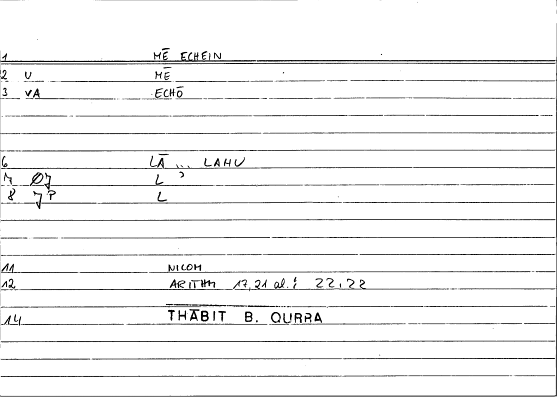 1 MĒ ECHEIN
2 U MĒ
3 VA ECHŌ
6 LĀ ... LAHU
7 Ø7 L ʾ
8 7P L
11 NICOM
12 ARITHM 17,21 al.: 22,22
14 THĀBIT B. QURRA